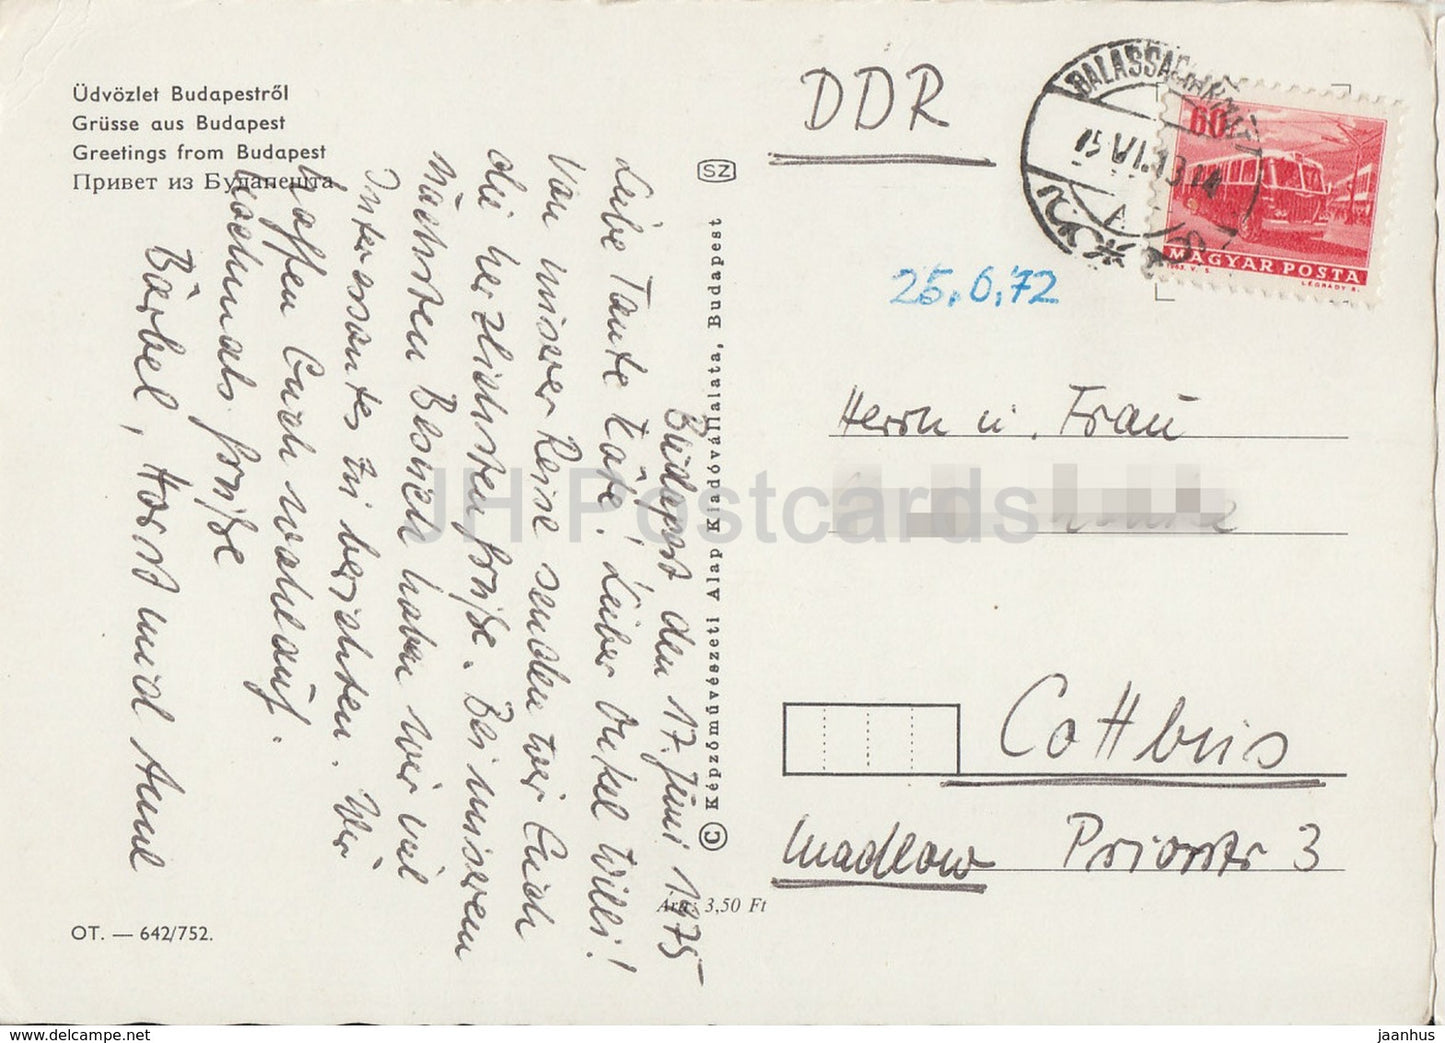 Üdvözlet Budapestről
Grüsse aus Budapest
Greetings from Budapest
Привет из Будапешта
Budapest den 17. Juni 1975
Liebe Tante Käte! Lieber Onkel Willi!
Von unserer Reise senden wir Euch
die herzlichsten Grüße. Bei unserem
nächsten Besuch haben wir viel
Interessantes zu berichten. Wir
hoffen Euch wohlauf.
Nochmals Grüße
Bärbel, Horst und Anne
OT. — 642/752.
SZ
© Képzőművészeti Alap Kiadóvállalata, Budapest
Ára: 3,50 Ft
DDR
BALASSAGYARMAT
75 VI.
60
MAGYAR POSTA
LÉGRÁDY S.
25.6.72
Herrn u. Frau
Cottbus
Madlow Priorstr 3
JH Postcards
www.delcampe.net
jaanhus